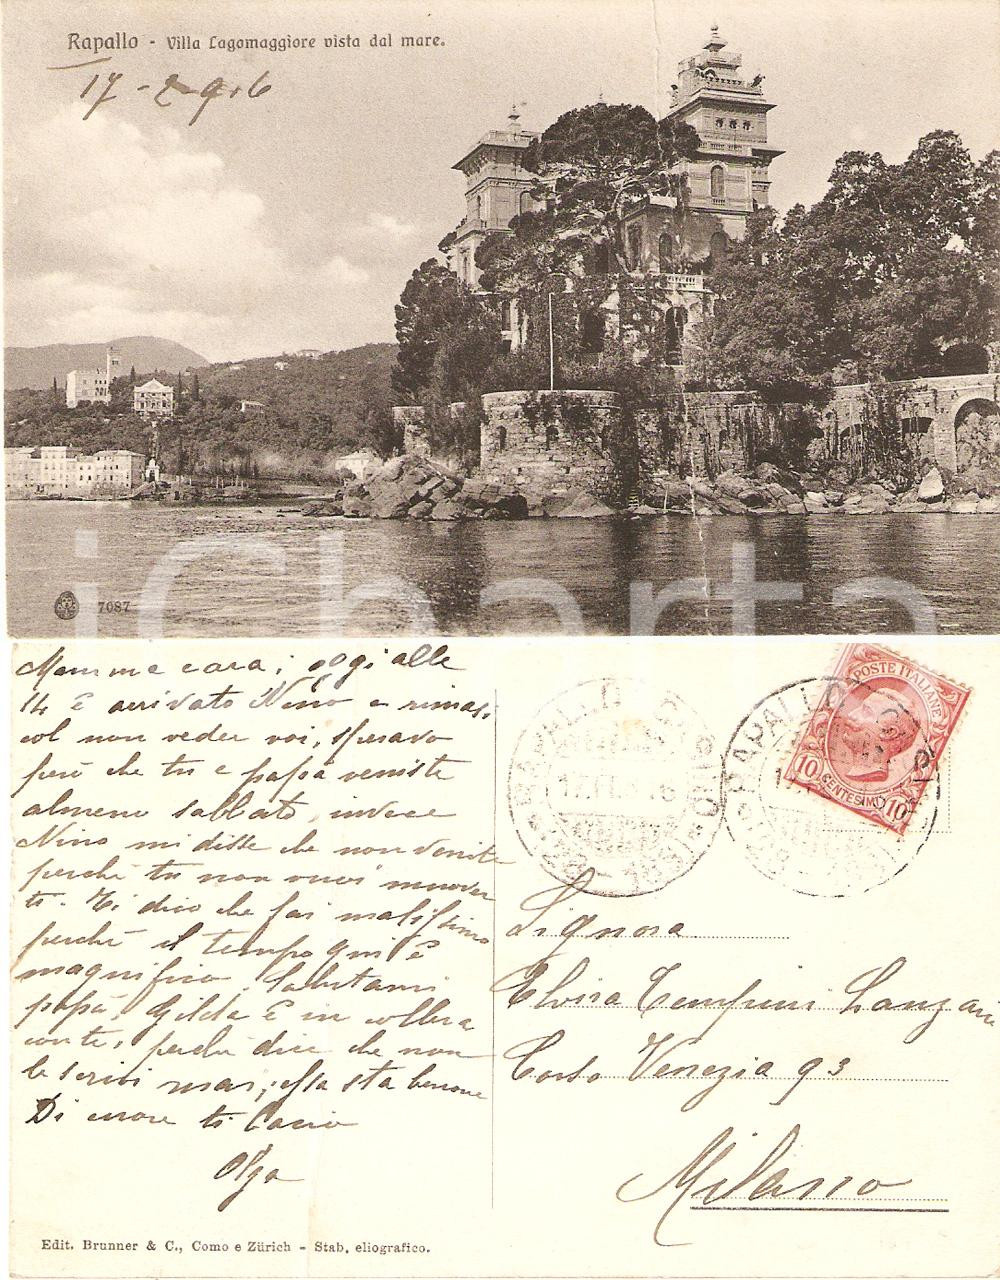 Rapallo - Villa Lagomaggiore vista dal mare.
17-2-916
7087
iCharta
Mamma cara; oggi alle
14 è arrivato Nino e rimasi
col non veder voi, speravo
però che tu e papà veniste
almeno sabbato, invece
Nino mi disse che non venite
perchè tu non vuoi muover
ti. Ti dico che fai malissimo
perchè il tempo qui è
magnifico. Salutami
papà, Gilda è in collera
con te, perchè dice che non
le scrivi mai; essa sta benone
Di cuore ti bacio
Olga
RAPALLO
17.11.916
RAPALLO
POSTE ITALIANE
10 CENTESIMI 10
Signora
Elvira Tempini Lanzani
Corso Venezia 93
Milano
Edit. Brunner & C., Como e Zürich - Stab. eliografico.